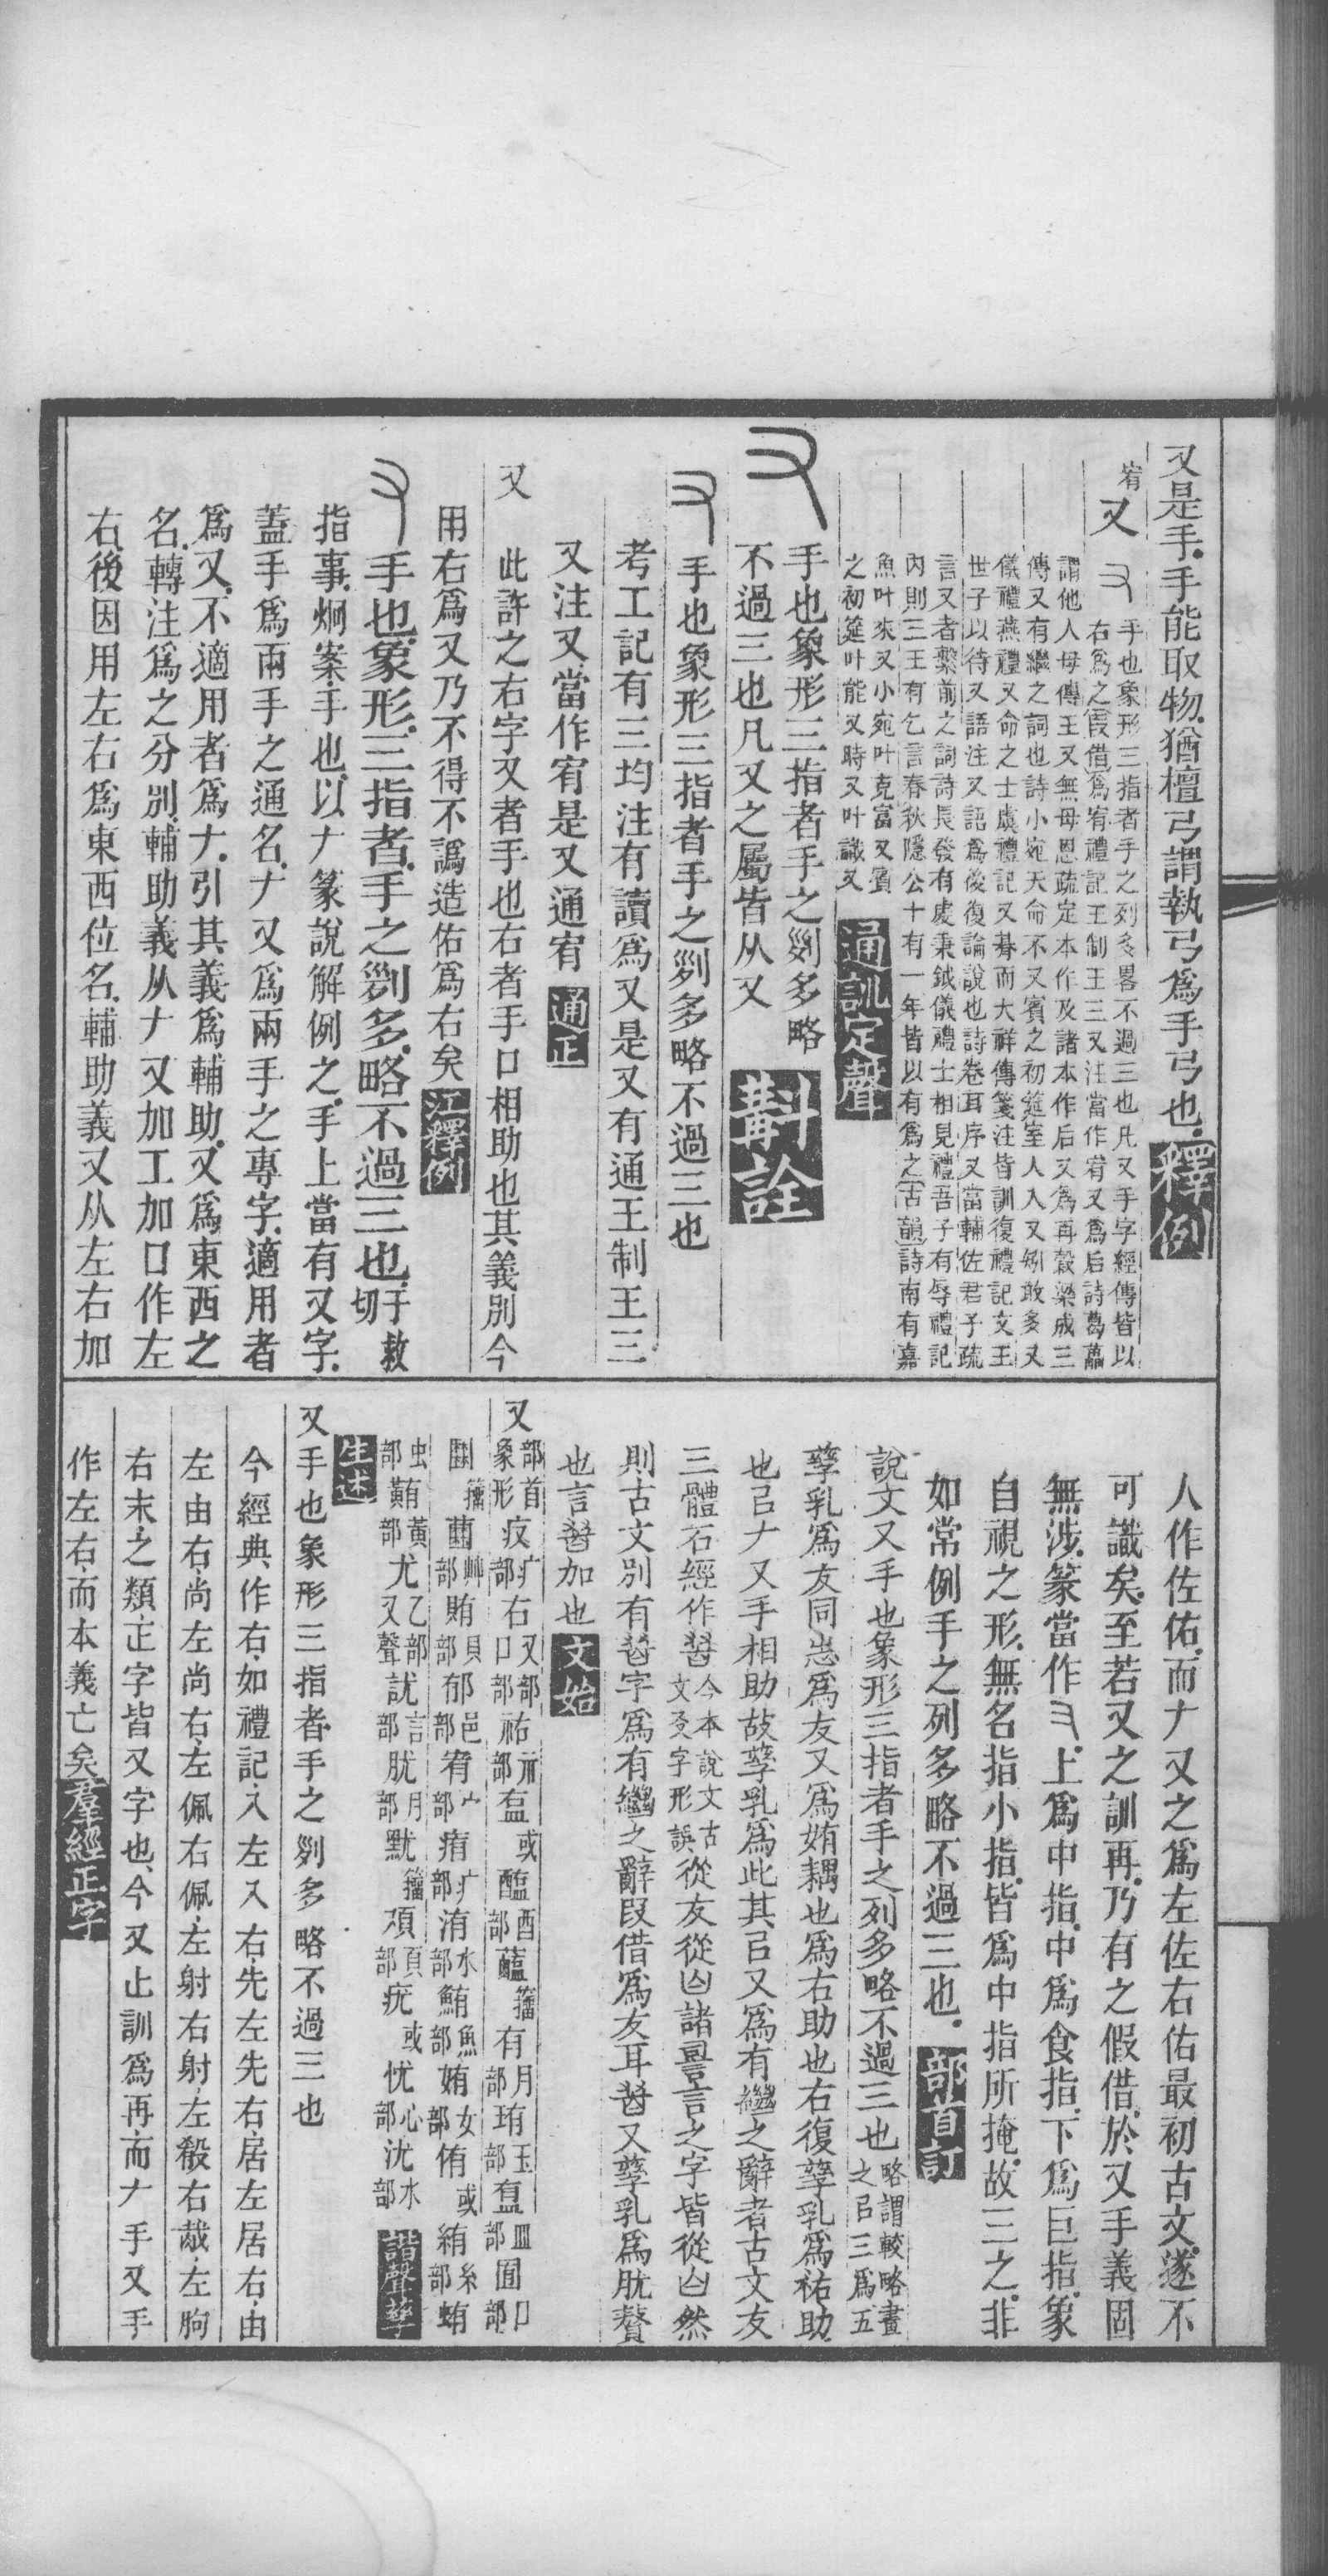 又是手手能取物猶檀弓謂執弓爲手弓也釋例
宥又
手也象形三指者手之列多畧不過三也凡又手字經傳皆以
右爲之假借爲宥禮記王制王三又注當作宥又爲后詩葛藟
謂他人母傳王又無母恩疏定本作及諸本作后又爲再穀梁成三
傳又有繼之詞也詩小宛天命不又賓之初筵室人入又矧敢多又
儀禮燕禮又命之士虞禮記又朞而大祥傳箋注皆訓復禮記文王
世子以待又語注又語爲後復論說也詩卷耳序又當輔佐君子疏
言又者繫前之詞詩長發有虔秉鉞儀禮士相見禮吾子有辱禮記
內則三王有乞言春秋隱公十有一年皆以有爲之古韻詩南有嘉
魚叶來又小宛叶克富又賓
之初筵叶能又時又叶識又
通訓定聲
手也象形三指者手之𠛱多略
不過三也凡又之屬皆从又
斠詮
手也象形三指者手之𠛱多略不過三也
考工記有三均注有讀爲又是又有通王制王三
又注又當作宥是又通宥通正
又 此許之右字又者手也右者手口相助也其義別今
用右爲又乃不得不譌造佑爲右矣江釋例
手也象形三指者手之𠛱多略不過三也于救切
指事炯案手也以𠂇篆說解例之手上當有又字
蓋手爲兩手之通名𠂇又爲兩手之專字適用者
爲又不適用者爲𠂇引其義爲輔助又爲東西之
名轉注爲之分別輔助義从𠂇又加工加口作左
右後因用左右爲東西位名輔助義又从左右加
人作佐佑而𠂇又之爲左佐右佑最初古文遂不
可識矣至若又之訓再乃有之假借於又手義固
無涉篆當作 上爲中指中爲食指下爲巨指象
自視之形無名指小指皆爲中指所掩故三之非
如常例手之列多略不過三也部首訂
說文又手也象形三指者手之列多略不過三也略謂較略畫之㠯三爲五
孳乳爲友同志爲友又爲姷耦也爲右助也右復孳乳爲祐助
也㠯𠂇又手相助故孳乳爲此其㠯又爲有繼之辭者古文友
三體石經作𦫹今本說文古文友字形誤從友從凶諸 言之字皆從凶然
則古文別有𦫹字爲有繼之辭叚借爲友耳𦫹又孳乳爲肬贅
也言𦫹加也文始
又部首象形疚疒部右又部口部祐示部 或醢酉部 籀有月部珛玉部盍皿部囿囗部
籀 艸部賄貝部郁邑部宥宀部痏疒部洧水部鮪魚部姷女部侑或絠糸部蛕
虫部䵋黃部尤乙部又聲訧言部肬月部黕籀頄頁部疣或忧心部沋水部 諧聲孳
生述
又手也象形三指者手之𠛱多略不過三也
今經典作右如禮記入左入右先左先右居左居右由
左由右尚左尚右左佩右佩左射右射左殽右胾左朐
右末之類正字皆又字也今又止訓爲再而𠂇手又手
作左右而本義亡矣羣經正字